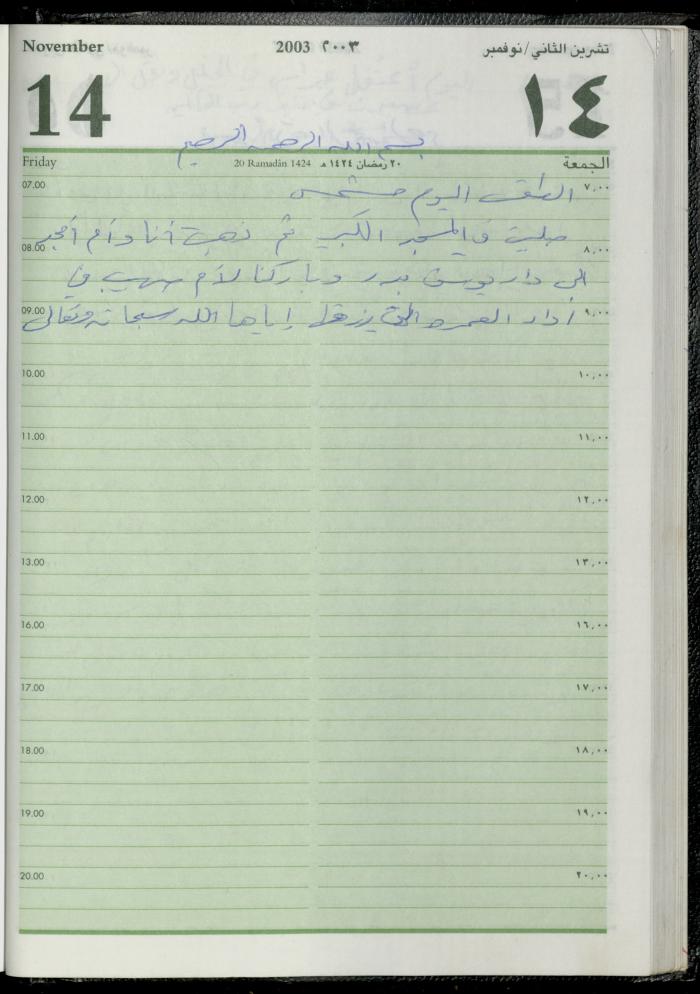 November 2003 ٢٠٠٣ تشرين الثاني/نوفمبر
14 ١٤
بسم الله الرحمن الرحيم
Friday 20 Ramadán 1424 ٢٠ رمضان ١٤٢٤ هـ الجمعة
07.00 ٧,٠٠
الطقس اليوم مشمس
صليت في المسجد الكبير ثم ذهبت أنا وأم أمجد
08.00 ٨,٠٠
الى دار يوسف بدر وباركنا لأم صهيب في
09.00 ٩,٠٠
أداء العمره التي رزقها إياها الله سبحانه وتعالى
10.00 ١٠,٠٠
11.00 ١١,٠٠
12.00 ١٢,٠٠
13.00 ١٣,٠٠
16.00 ١٦,٠٠
17.00 ١٧,٠٠
18.00 ١٨,٠٠
19.00 ١٩,٠٠
20.00 ٢٠,٠٠